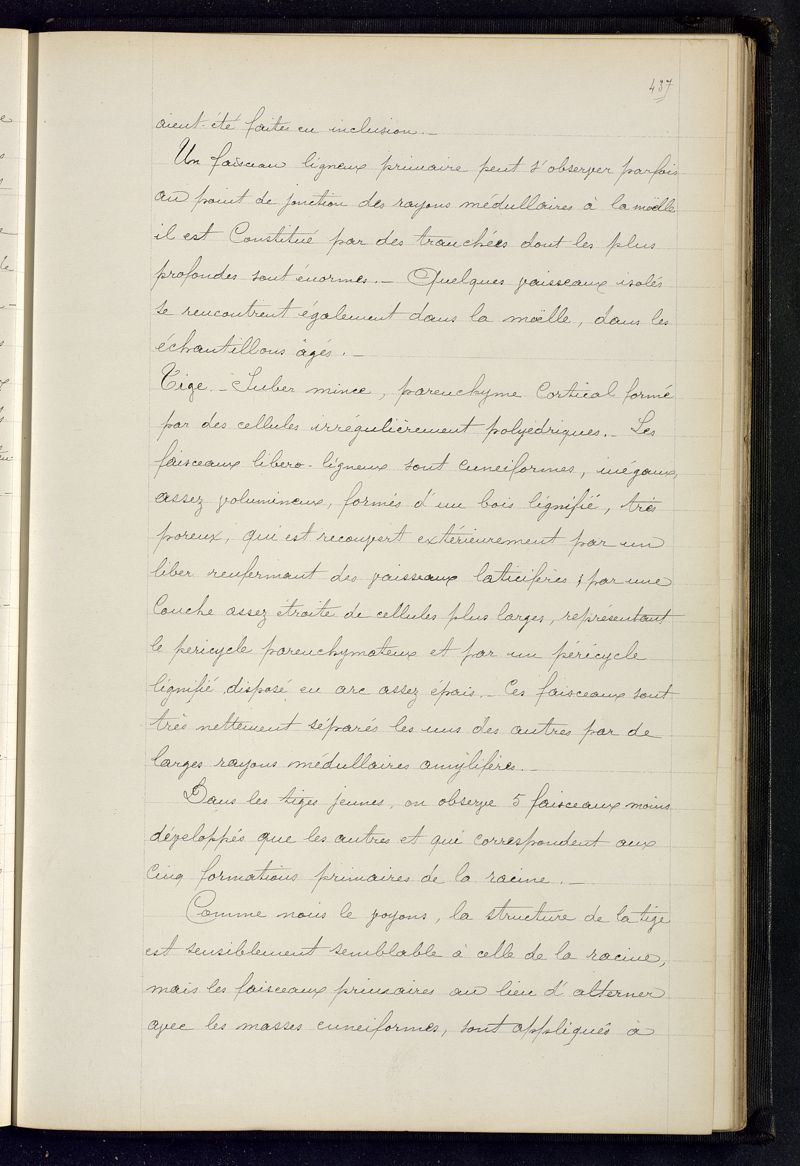 437
aient été faites en inclusion. _
Un faisceau ligneux primaire peut s'observer parfois
au point de jonction des rayons médullaires à la moëlle
il est Constitué par des trachées dont les plus
profondes sont énormes. _ Quelques vaisseaux isolés
se rencontrent également dans la moëlle, dans les
échantillons âgés. _
Tige. _ Suber mince, parenchyme Cortical formé
par des cellules irrégulièrement polyédriques. _ Les
faisceaux libero-ligneux sont cuneiformes, inégaux,
assez volumineux, formés d'un bois lignifié, très
poreux, qui est recouvert extérieurement par un
liber renfermant des vaisseaux laticifères ; par une
Couche assez étroite de cellules plus larges, représentant
le péricycle parenchymateux et par un péricycle
lignifié disposé en arc assez épais. _ Ces faisceaux sont
très nettement séparés les uns des autres par de
larges rayons médullaires amylifères. _
Dans les tiges jeunes, on observe 5 faisceaux moins
développés que les autres et qui correspondent aux
Cinq formations primaires de la racine. _
Comme nous le voyons, la structure de la tige
est sensiblement semblable à celle de la racine,
mais les faisceaux primaires au lieu d'alterner
avec les masses cuneiformes, sont appliqués à